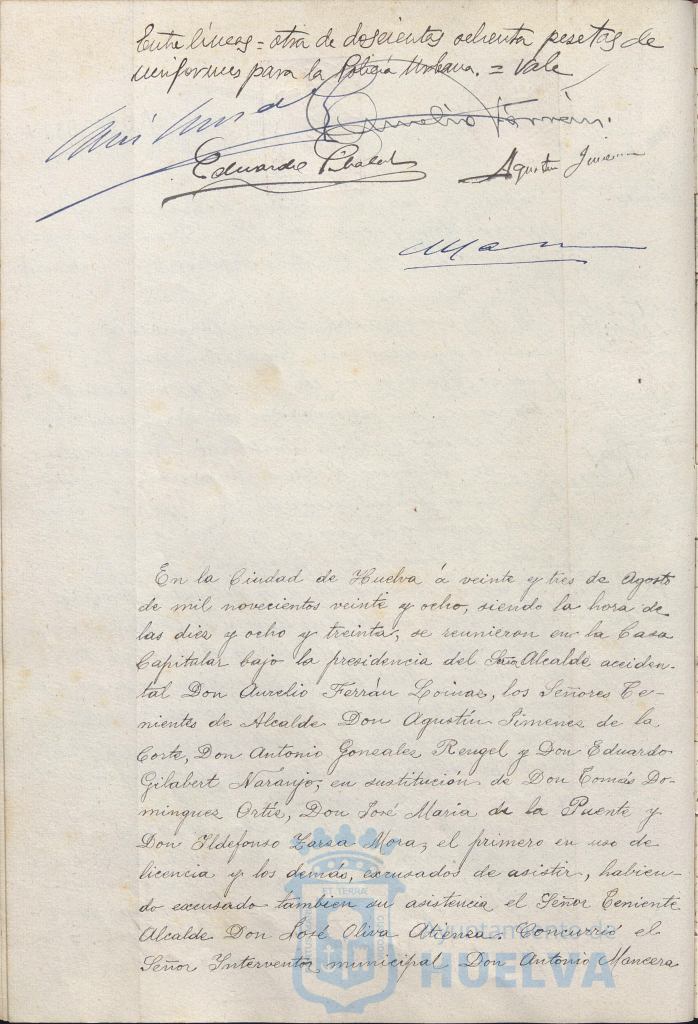 Entre líneas = otra de doscientas ochenta pesetas de
uniformes para la Policía Urbana. = Vale
Aurelio Ferrán
Eduardo Gilabert
Agustín Jimenez
En la Ciudad de Huelva á veinte y tres de Agosto
de mil novecientos veinte y ocho, siendo la hora de
las diez y ocho y treinta, se reunieron en la Casa
Capitular bajo la presidencia del Señor Alcalde acciden-
tal Don Aurelio Ferrán Loinaz, los Señores Te-
nientes de Alcalde Don Agustín Jimenez de la
Corte, Don Antonio Gonzalez Rengel y Don Eduardo
Gilabert Naranjo, en sustitución de Don Tomás Do-
minguez Ortiz, Don José Maria de la Puente y
Don Ildefonso Zarza Mora, el primero en uso de
licencia y los demás, excusados de asistir, habien-
do excusado tambien su asistencia el Señor Teniente
Alcalde Don José Oliva Atienza. Concurrió el
Señor Interventor municipal Don Antonio Mancera
ET TERRÆ
Ayuntamiento de
HUELVA